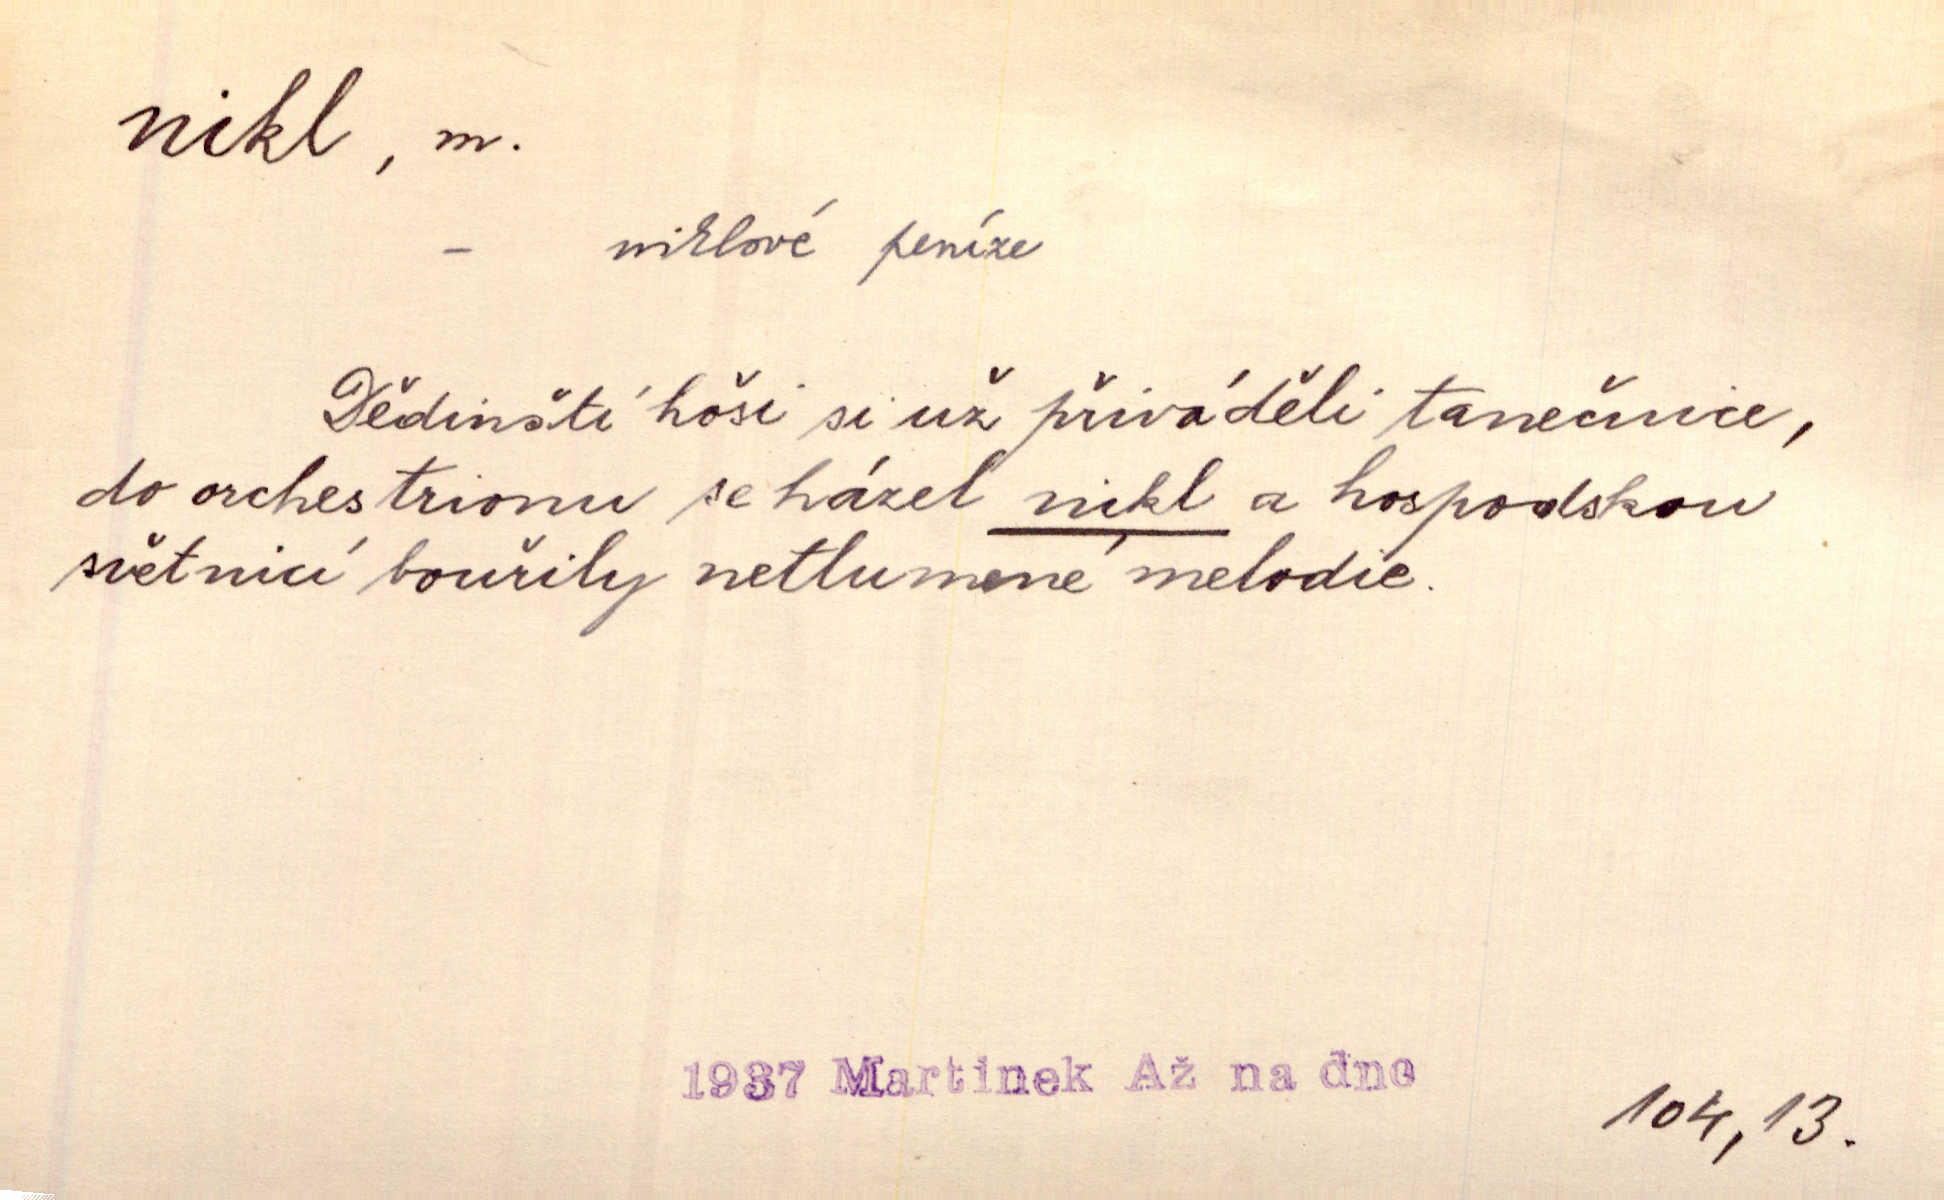 nikl, m.
– niklové peníze
Dědinští hoši si už přiváděli tanečnice,
do orchestrionu se házel nikl a hospodskou
světnicí bouřily netlumené melodie.
1937 Martinek Až na dno
104,13.